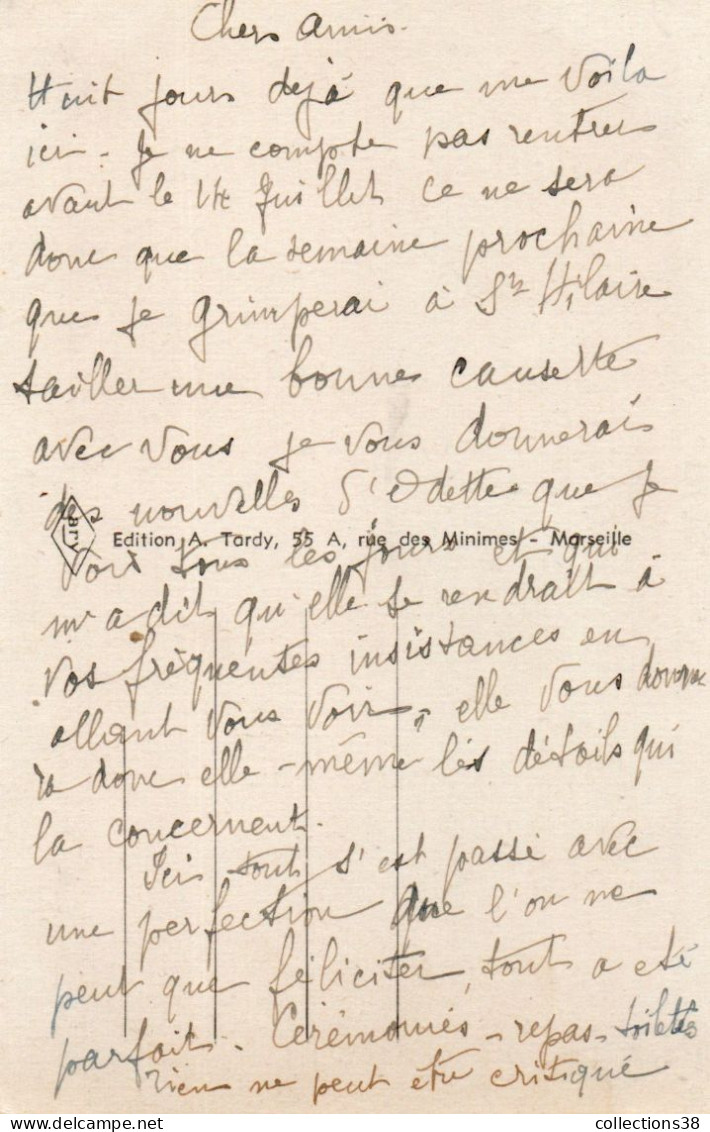 Chers amis.
Huit jours déjà que me voila
ici - Je ne compte pas rentrer
avant le 14 Juillet ce ne sera
donc que la semaine prochaine
que je grimperai à St Hilaire
tailler une bonne causette
avec vous je vous donnerais
des nouvelles d'Odette que je
BARY
Edition A. Tardy, 55 A, rue des Minimes - Marseille
vois tous les jours et qui
m'a dit qu'elle se rendrait à
vos fréquentes insistances en
allant vous voir, elle vous donne
ra donc elle-même les détails qui
la concernent.
Ici tout s'est passé avec
une perfection que l'on ne
peut que féliciter, tout a été
parfait. Cérémonies - repas - toilettes
rien ne peut être critiqué
collections38